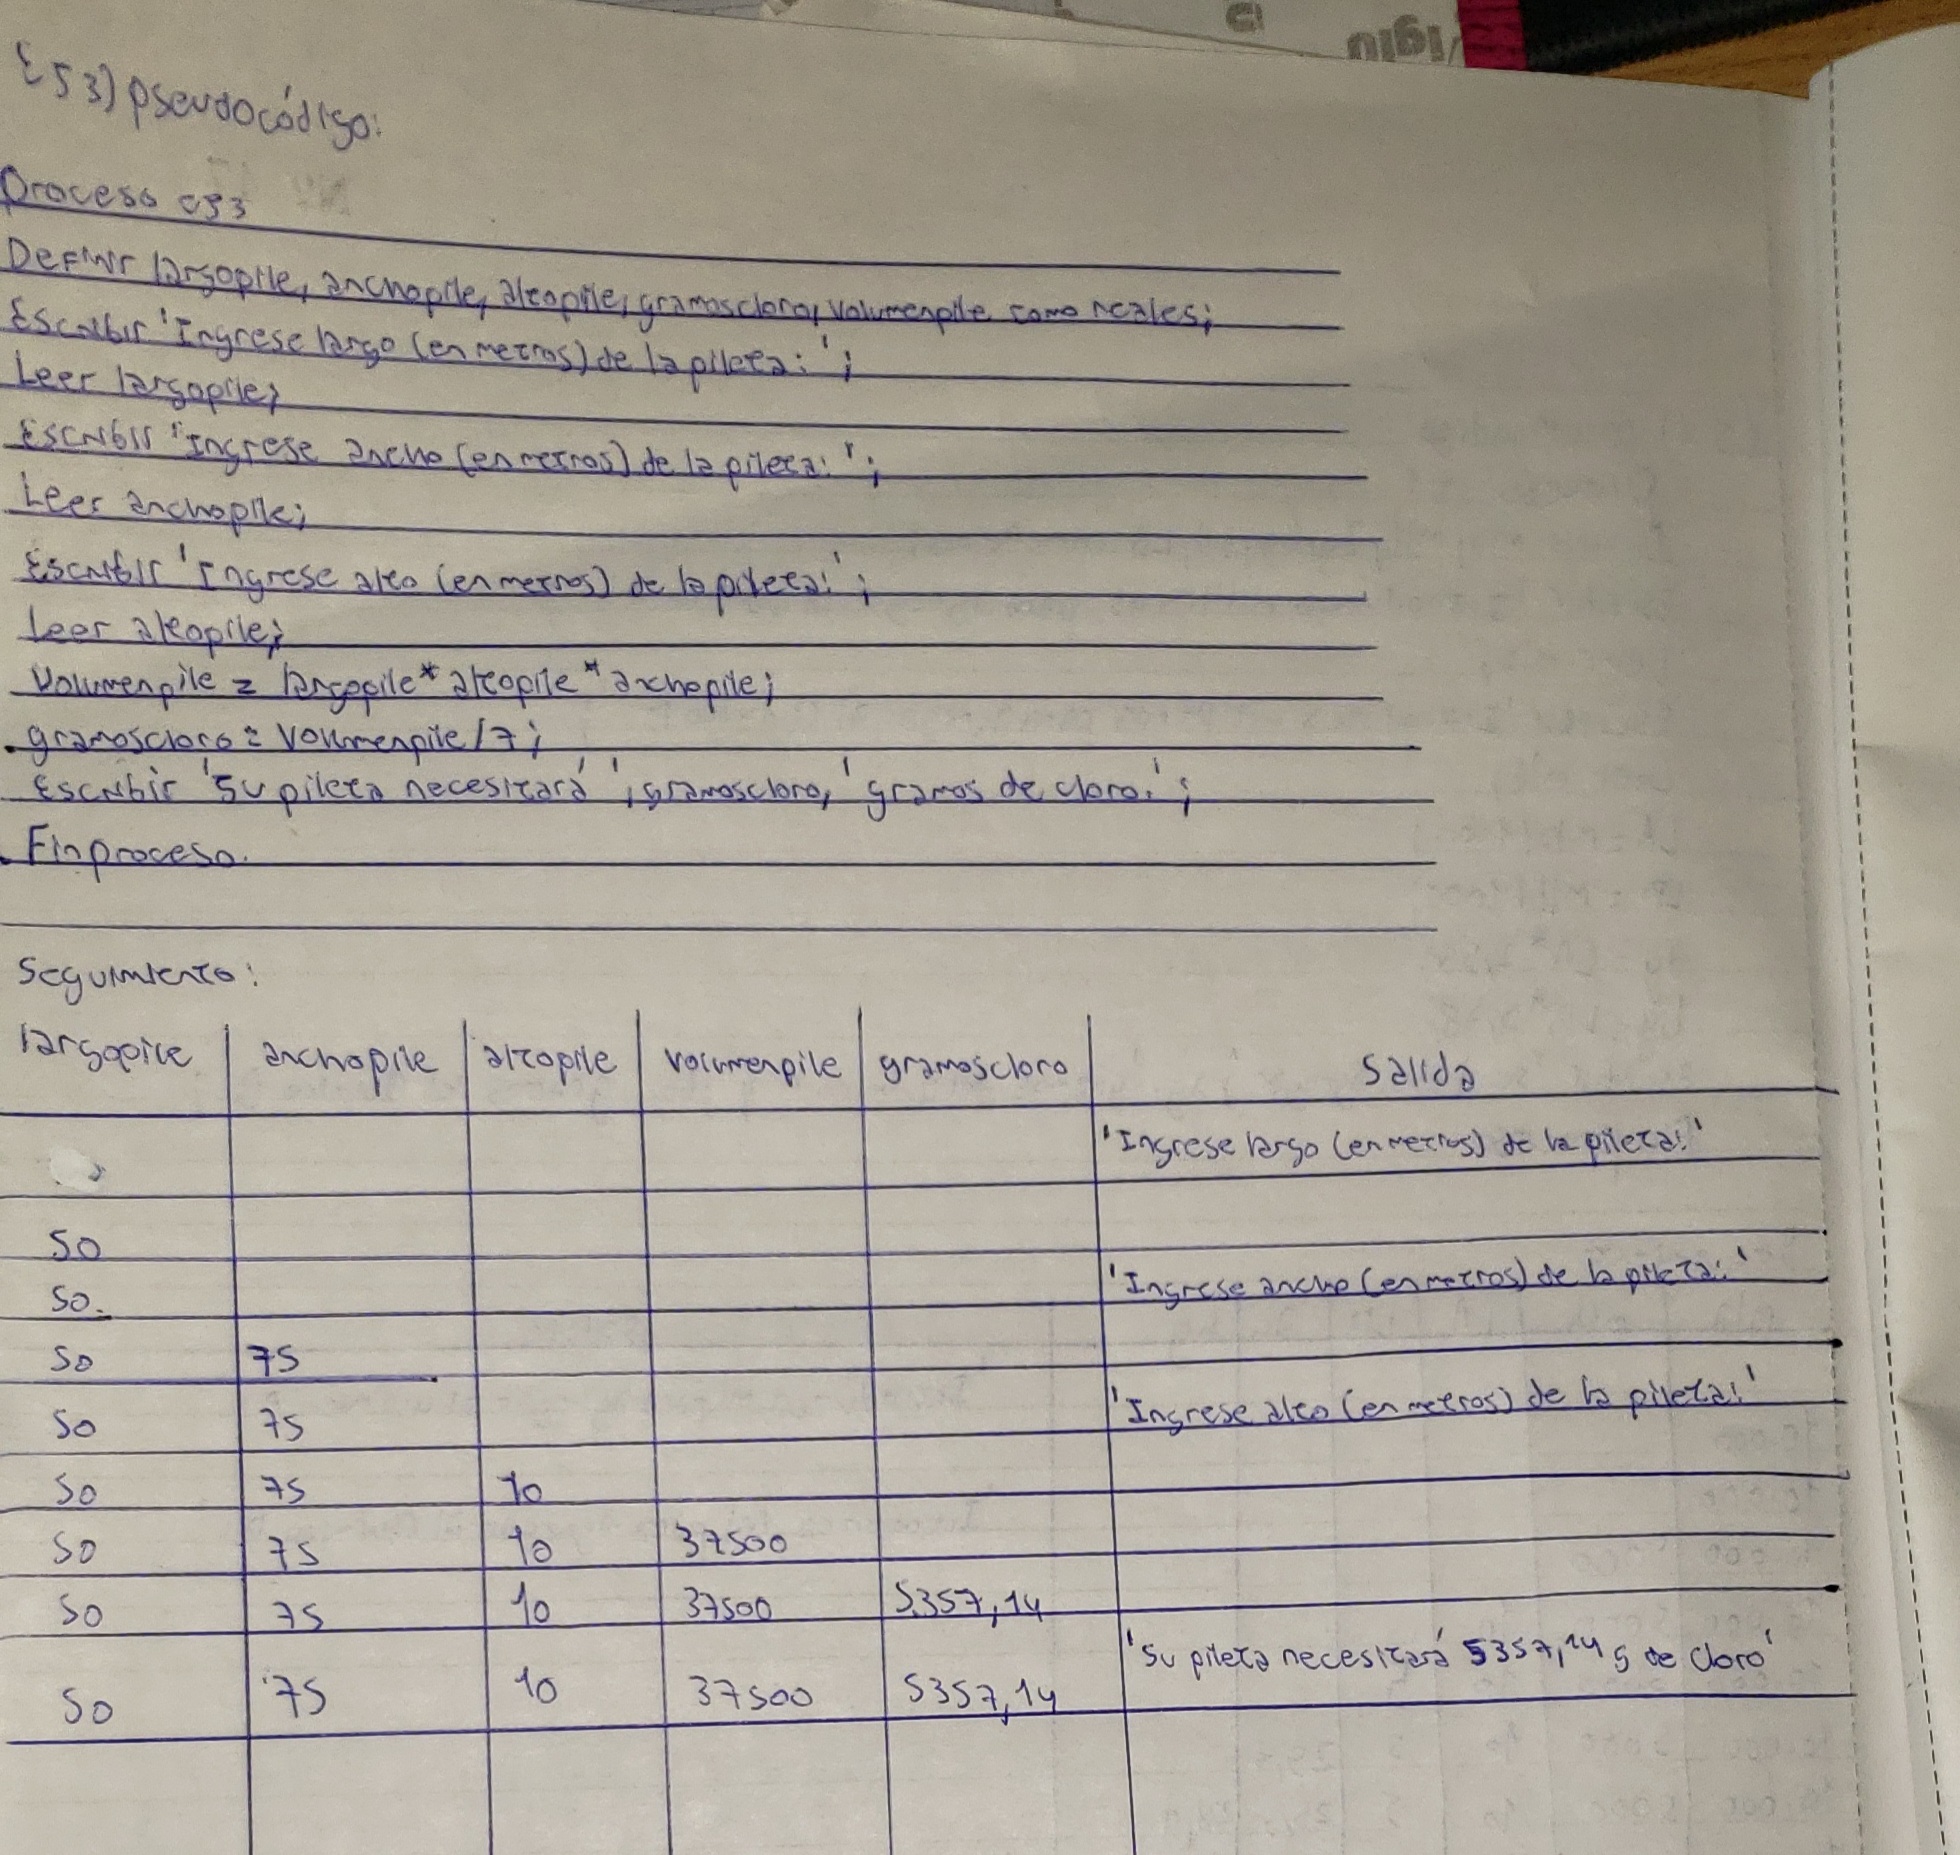 E53) pseudocódigo:
Proceso e53
Definir largopile, anchopile, altopile, gramoscloro, volumenpile como reales;
Escribir 'Ingrese largo (en metros) de la pileta: ';
Leer largopile;
Escribir 'Ingrese ancho (en metros) de la pileta: ';
Leer anchopile;
Escribir 'Ingrese alto (en metros) de la pileta: ';
Leer altopile;
Volumenpile = largopile * altopile * achopile;
gramoscloro = volumenpile / 7;
Escribir 'Su pileta necesitará ', gramoscloro, ' gramos de cloro.';
Finproceso.
Seguimiento:
largopile anchopile altopile volumenpile gramoscloro Salida
'Ingrese largo (en metros) de la pileta:'
50
50 'Ingrese ancho (en metros) de la pileta: '
50 75
50 75 'Ingrese alto (en metros) de la pileta: '
50 75 10
50 75 10 37500
50 75 10 37500 5357,14
50 75 10 37500 5357,14 'Su pileta necesitará 5357,14 g de cloro'